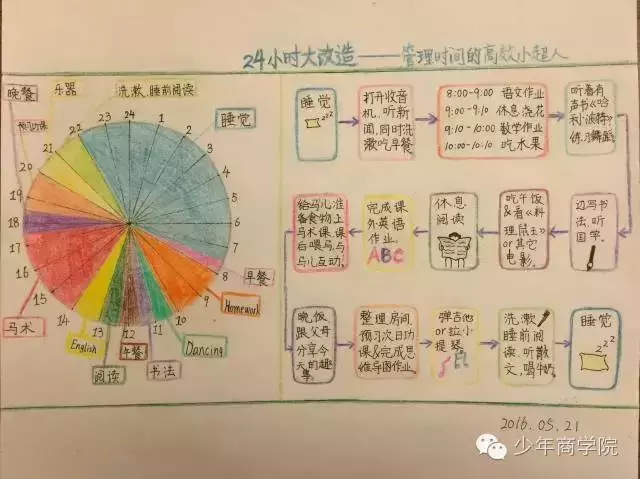 24小时大改造——管理时间的高效小超人
晚餐
乐器
洗漱、睡前阅读
预习功课
睡觉
24
1
2
3
4
5
6
7
8
9
10
11
12
13
14
15
16
17
18
19
20
21
22
23
早餐
Homework
Dancing
书法
午餐
阅读
English
马术
睡觉
zzz
打开收音
机、听新
闻,同时洗
漱吃早餐
8:00-9:00 语文作业
9:00-9:10 休息,浇花
9:10-10:00 数学作业
10:00-10:10 吃水果
听着有
声书《哈
利·波特》
练习舞蹈
边写书
法,听
国学。
吃午饭
&看《料
理鼠王》
or其它
电影。
休息
阅读
完成课
外英语
作业。
ABC
给马儿准
备食物,上
马术课,课
后喂马,与
马儿互动。
晚饭
跟父母
分享今
天的趣
事。
整理房间,
预习次日功
课&完成思
维导图作业。
弹吉他
or拉小
提琴
洗漱
睡前阅
读、听散
文,喝牛奶
睡觉
zzz
2016.05.21
少年商学院